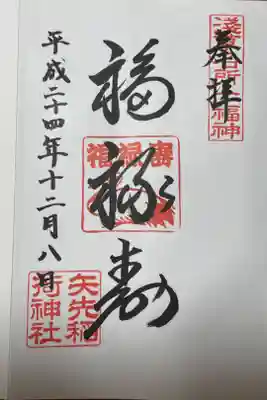 奉拝
浅草名所七福神
福禄寿
福禄寿
平成二十四年十二月八日
矢先稲
荷神社